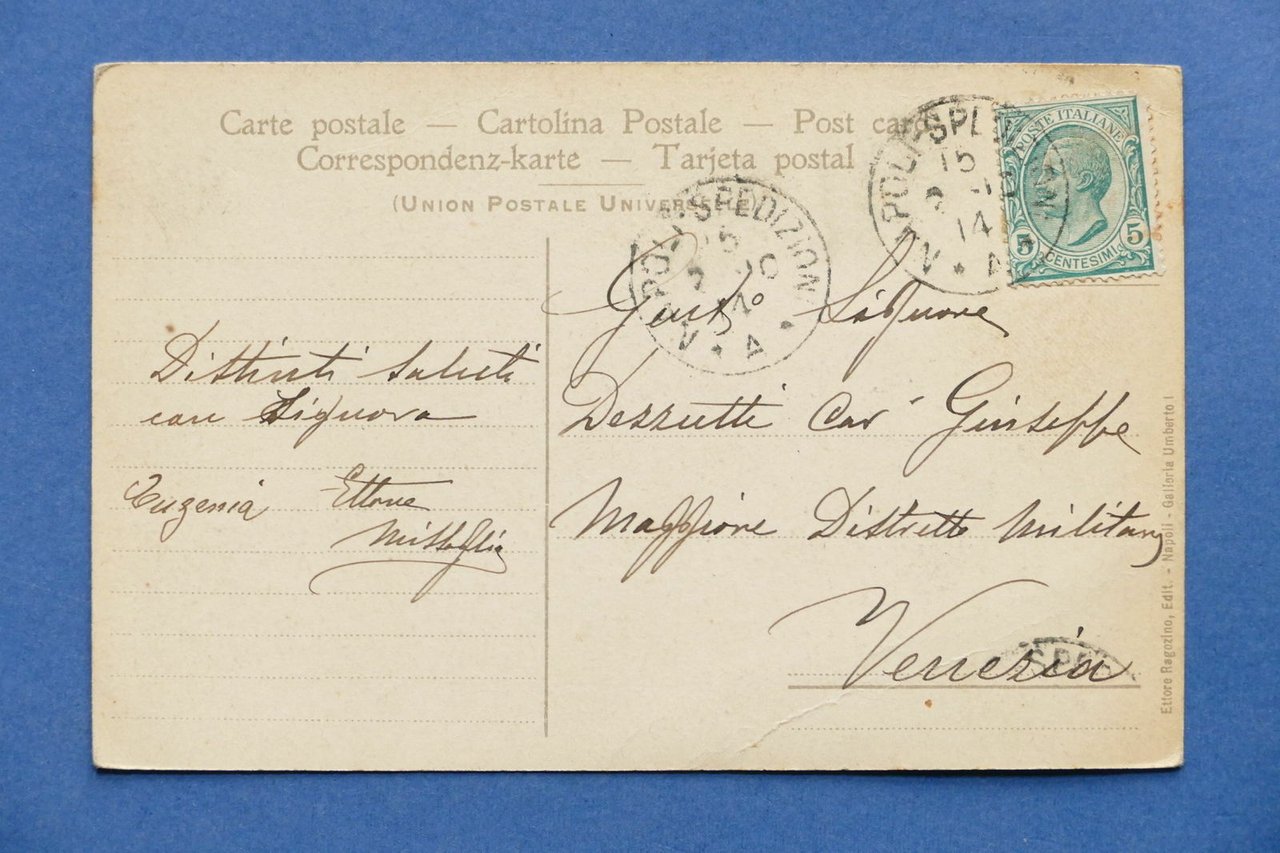 Carte postale — Cartolina Postale — Post card
Correspondenz-karte — Tarjeta postal
(UNION POSTALE UNIVERSELLE)
POSTE ITALIANE
5 5
CENTESIMI
NAPOLI-SPEDIZION
15
14
NAPOLI-SPEDIZION
Distinti saluti
con Signora
Eugenia Ettore
Signore
Dezzutti Cav Giuseppe
Maggiore Distretto Militare
Venezia
SPED
Ettore Ragozino, Edit. - Napoli - Galleria Umberto I